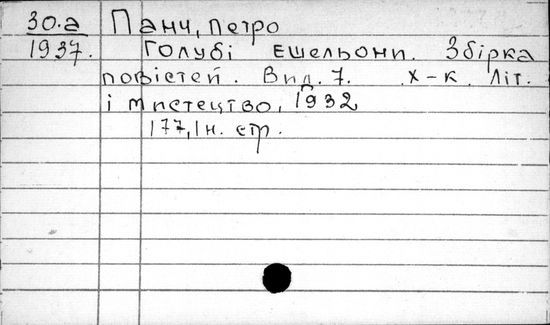 30.а Панч, Петро
1937. Голубі ешельони. Збірка
повістей. Вид. 7. Х-к. Літ.
і мистецтво, 1932
177, 1 н. стр.